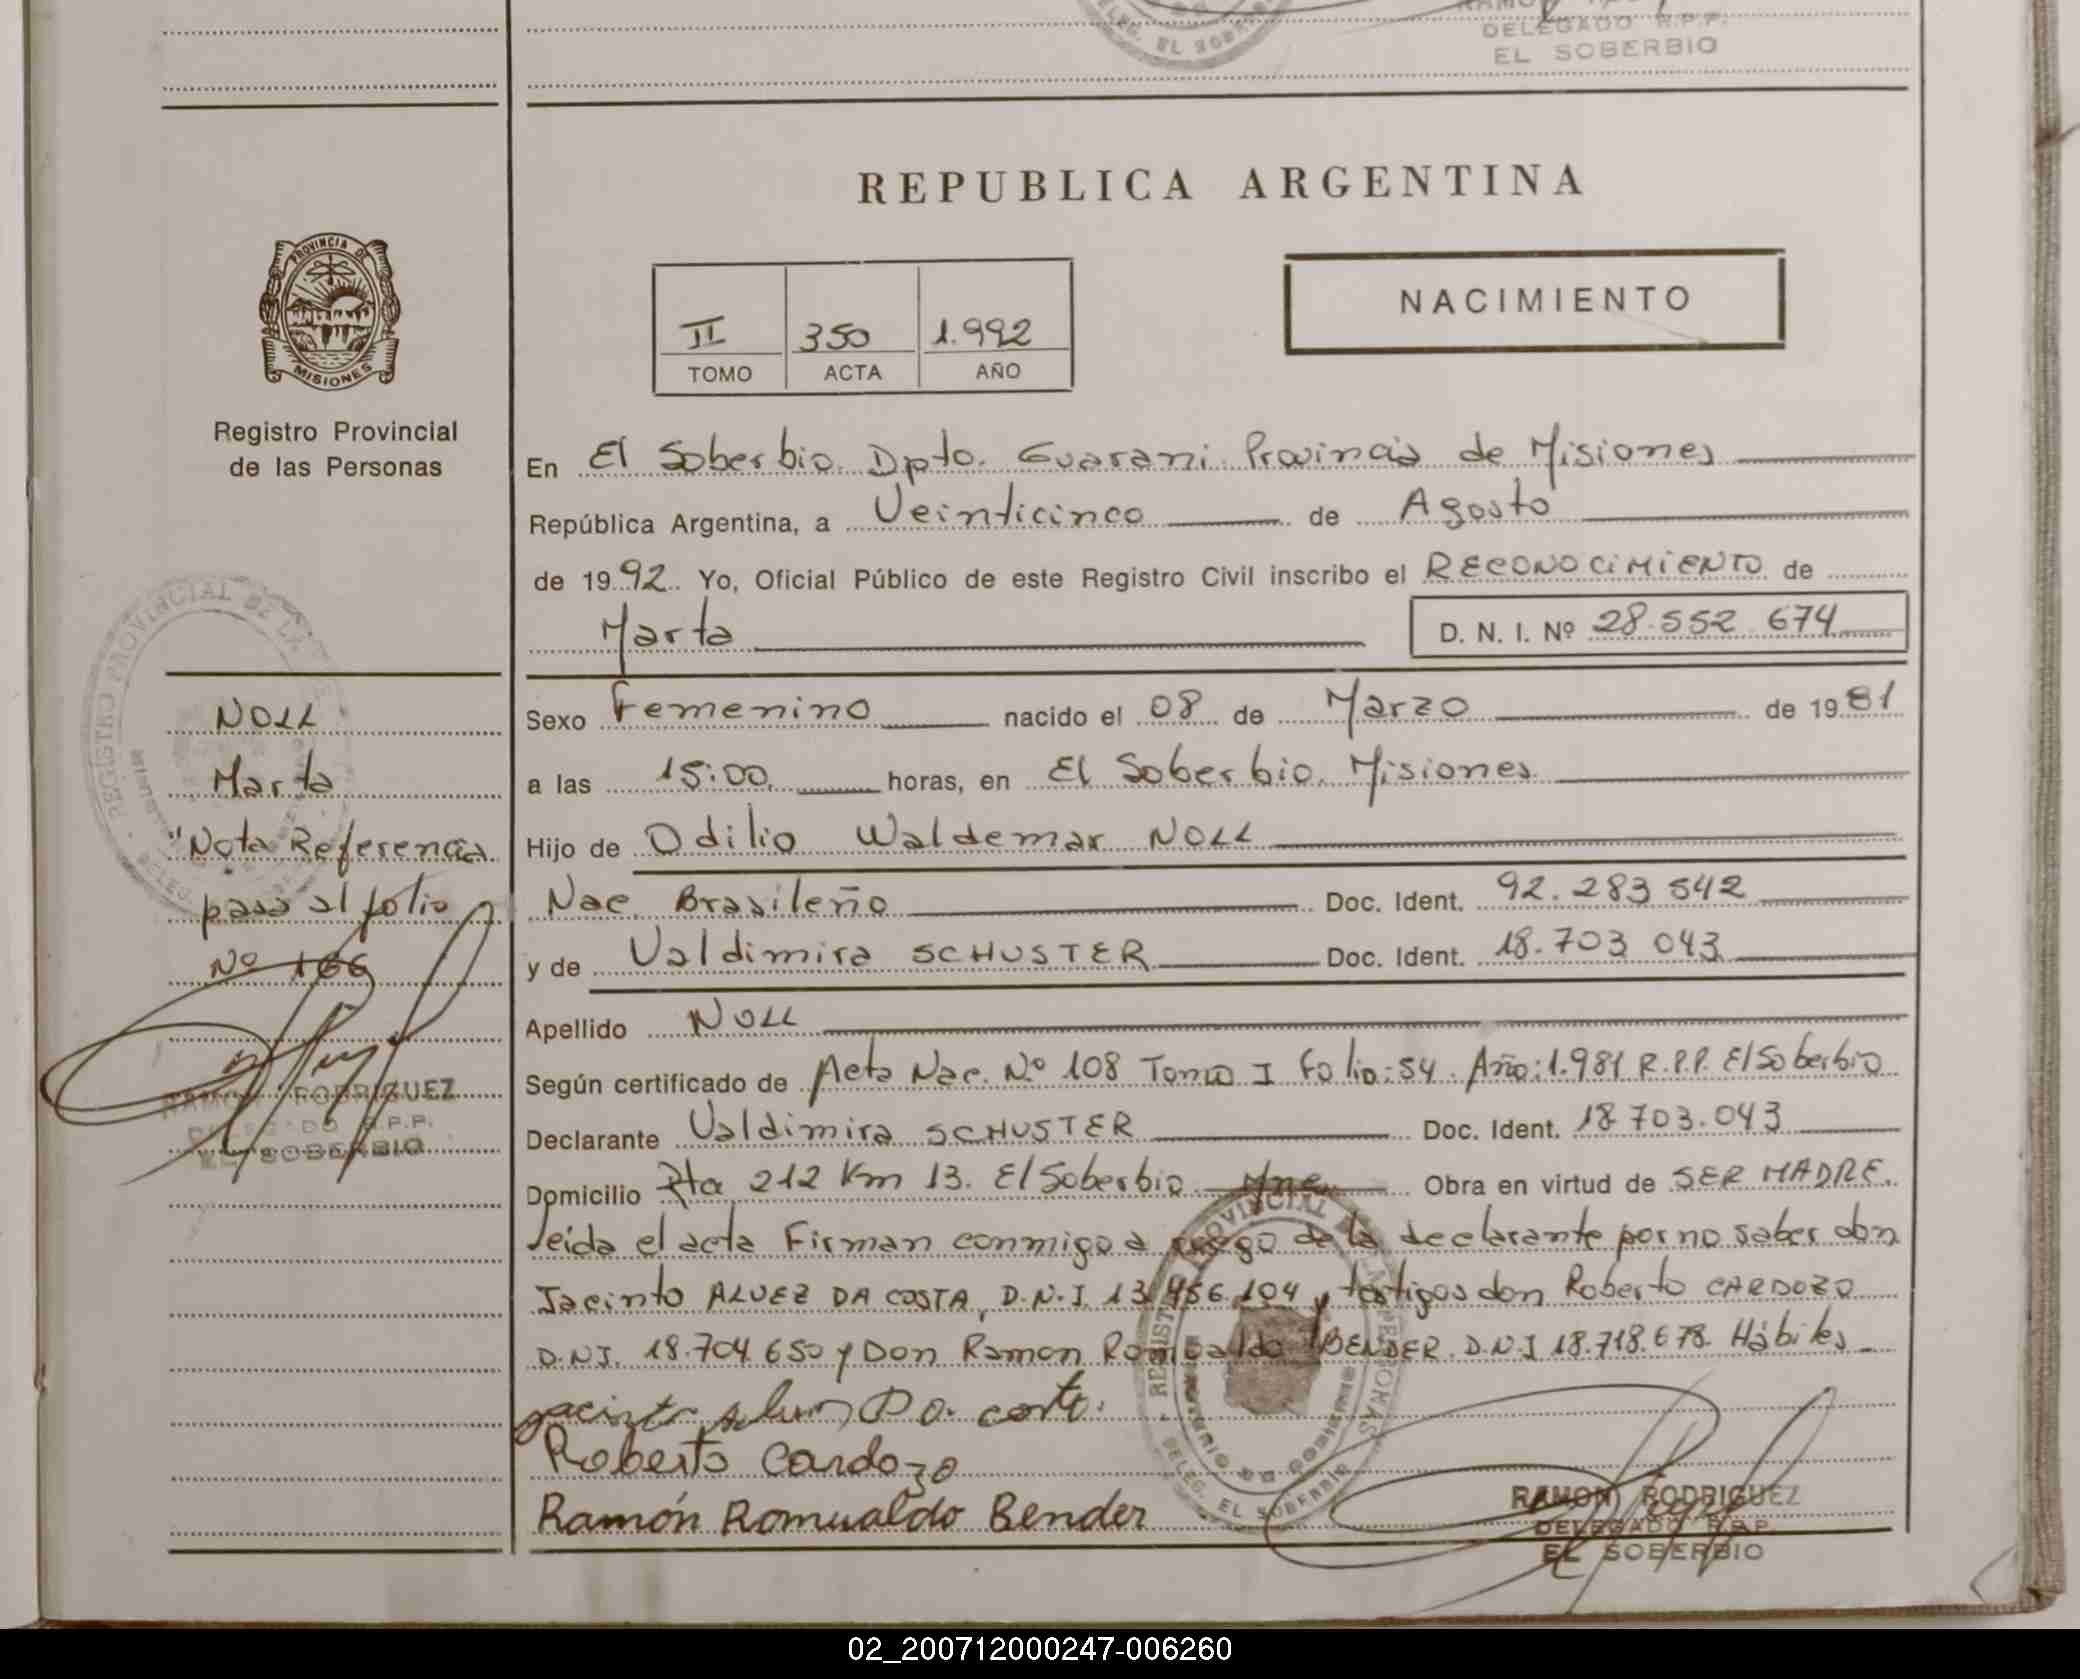 DELEGADO R.P.P.
EL SOBERBIO
DELEG. EL SOBERBIO
REPUBLICA ARGENTINA
PROVINCIA DE
MISIONES
Registro Provincial
de las Personas
II 350 1.992
TOMO ACTA AÑO
NACIMIENTO
En El Soberbio. Dpto. Guarani. Provincia de Misiones
República Argentina, a Veinticinco de Agosto
de 1992 Yo, Oficial Público de este Registro Civil inscribo el RECONOCIMIENTO de
Marta D. N. I. Nº 28.552.674
Sexo Femenino nacido el 08 de Marzo de 1981
a las 15:00 horas, en El Soberbio. Misiones
Hijo de Odilio Waldemar NOLL
Nac. Brasileño Doc. Ident. 92.283.542
y de Valdimira SCHUSTER Doc. Ident. 18.703.043
Apellido NOLL
Según certificado de Acta Nac. Nº 108 Tomo I Folio: 54. Año: 1.981 R.P.P. El Soberbio
Declarante Valdimira SCHUSTER Doc. Ident. 18.703.043
Domicilio Rta 212 Km 13. El Soberbio Mnes Obra en virtud de SER MADRE.
leida el acta Firman conmigo a ruego de la declarante por no saber don
Jacinto ALVEZ DA COSTA, D.N.I. 13.456.104 y testigos don Roberto CARDOZO
D.N.I. 18.704.650 y Don Ramon Romualdo BENDER. D.N.I 18.718.678. Hábiles
Roberto Cardozo
Ramón Romualdo Bender
RAMON RODRIGUEZ
DELEGADO R.P.P.
EL SOBERBIO
REGISTRO PROVINCIAL DE LAS PERSONAS
DELEG. EL SOBERBIO
NOLL
Marta
"Nota Referencia
pasa al folio
Nº 166
RAMON RODRIGUEZ
DELEGADO R.P.P.
EL SOBERBIO
REGISTRO PROVINCIAL DE LA
02_200712000247-006260